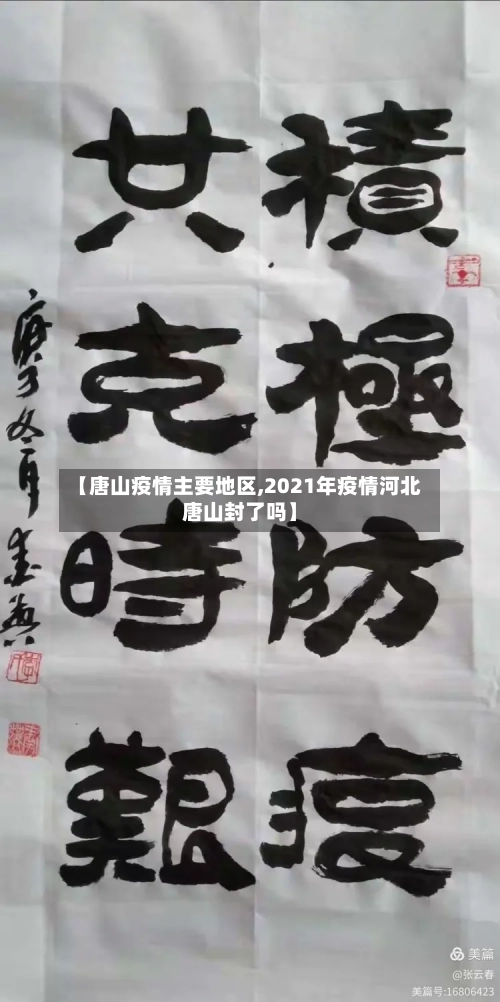 積極防疫
共克時艱
庚子冬月
【唐山疫情主要地区,2021年疫情河北
唐山封了吗】
美篇
@张云春
美篇号:16806423